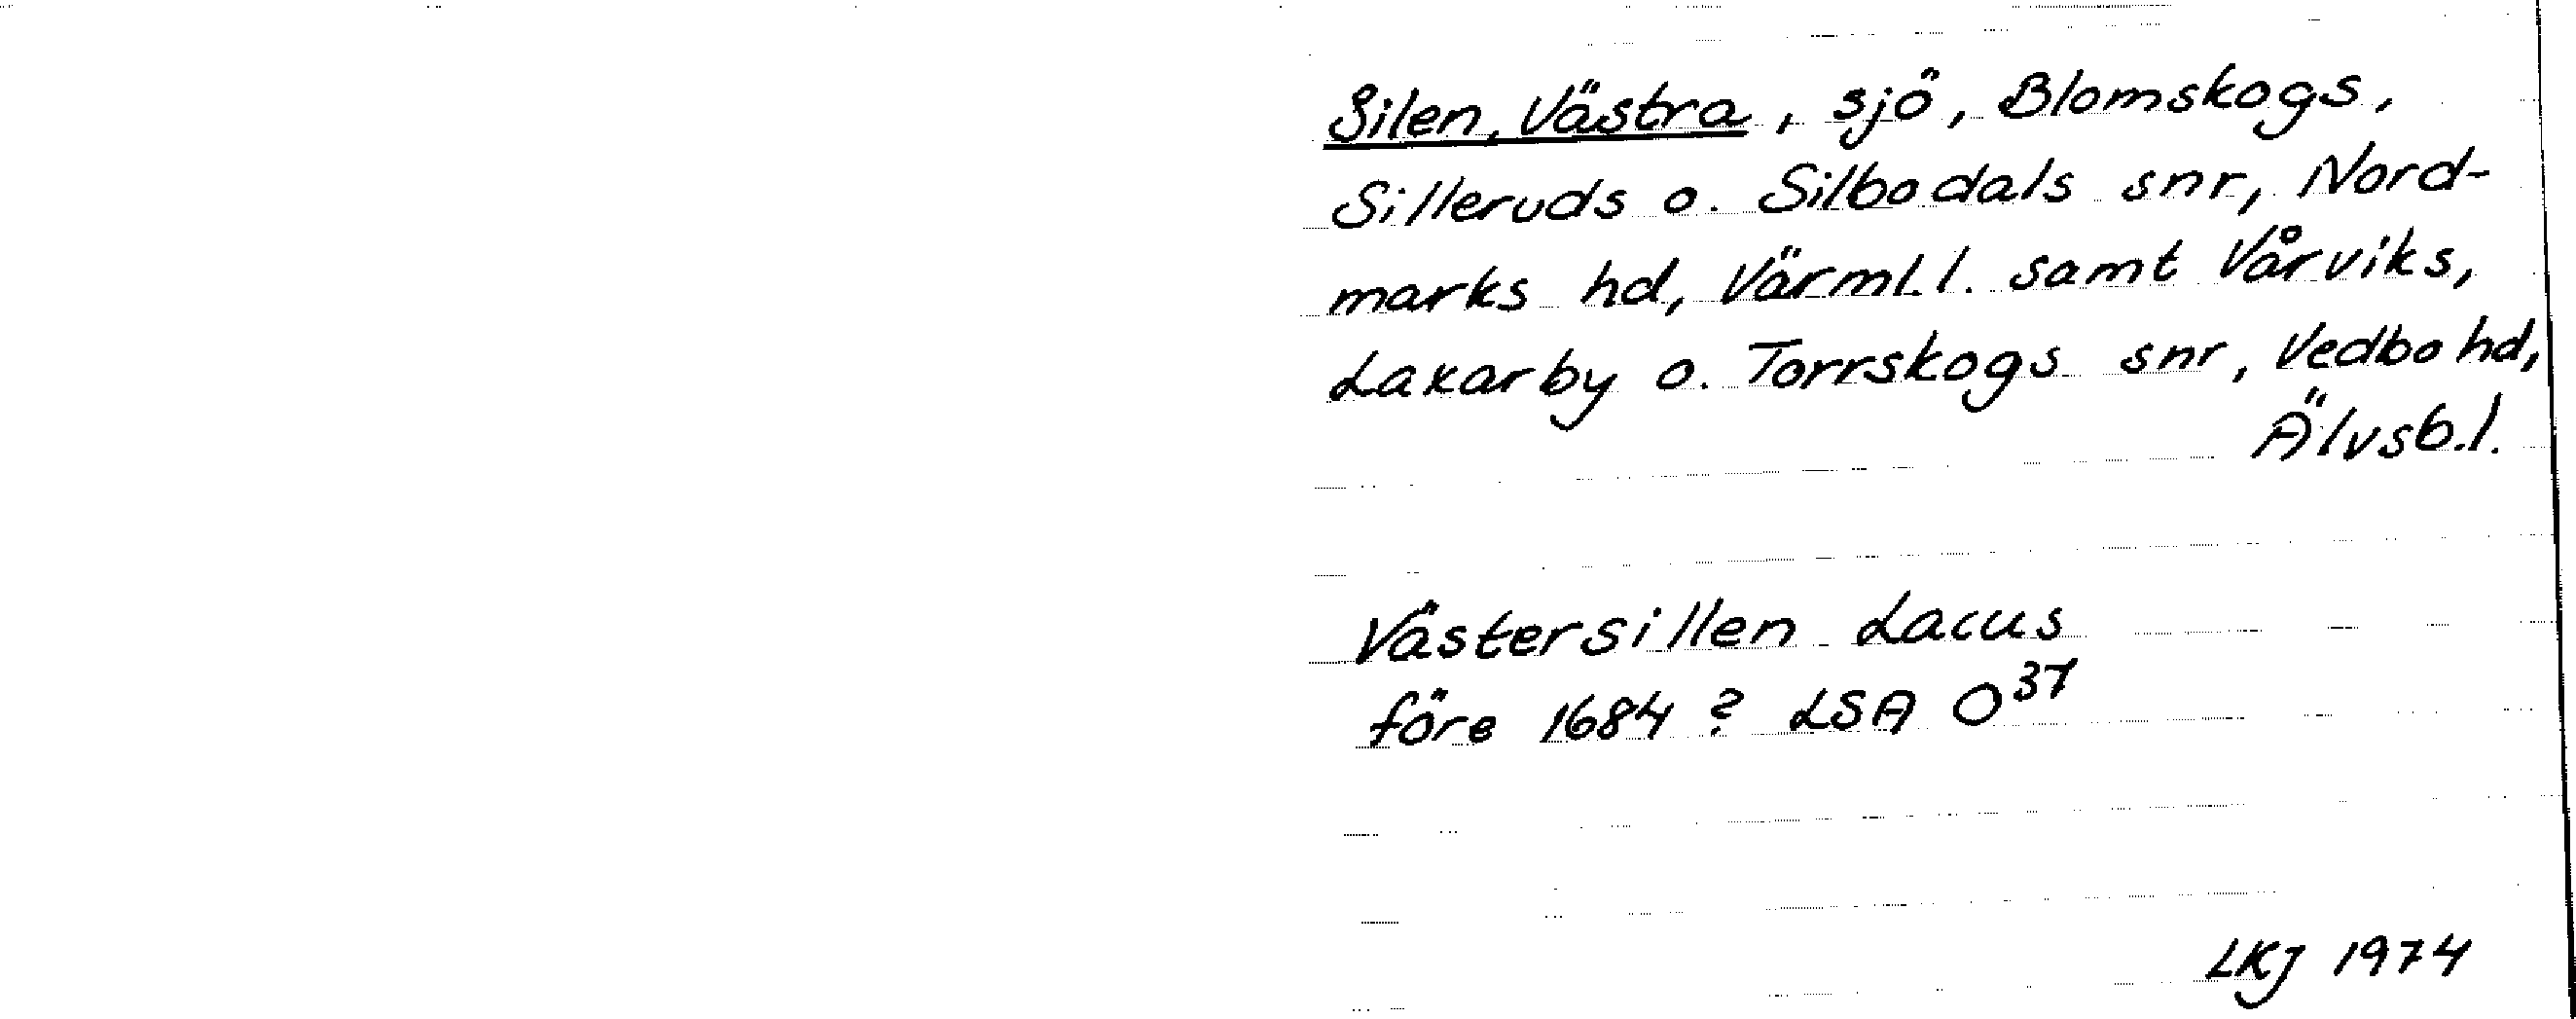 Silen, Västra, sjö, Blomskogs,
Silleruds o. Silbodals snr, Nord-
marks hd, Värml.l. samt Vårviks,
Laxarby o. Torrskogs snr, Vedbo hd,
Älvsb.l.
Västersillen Lacus
före 1684 ? LSA O37
LKJ 1974